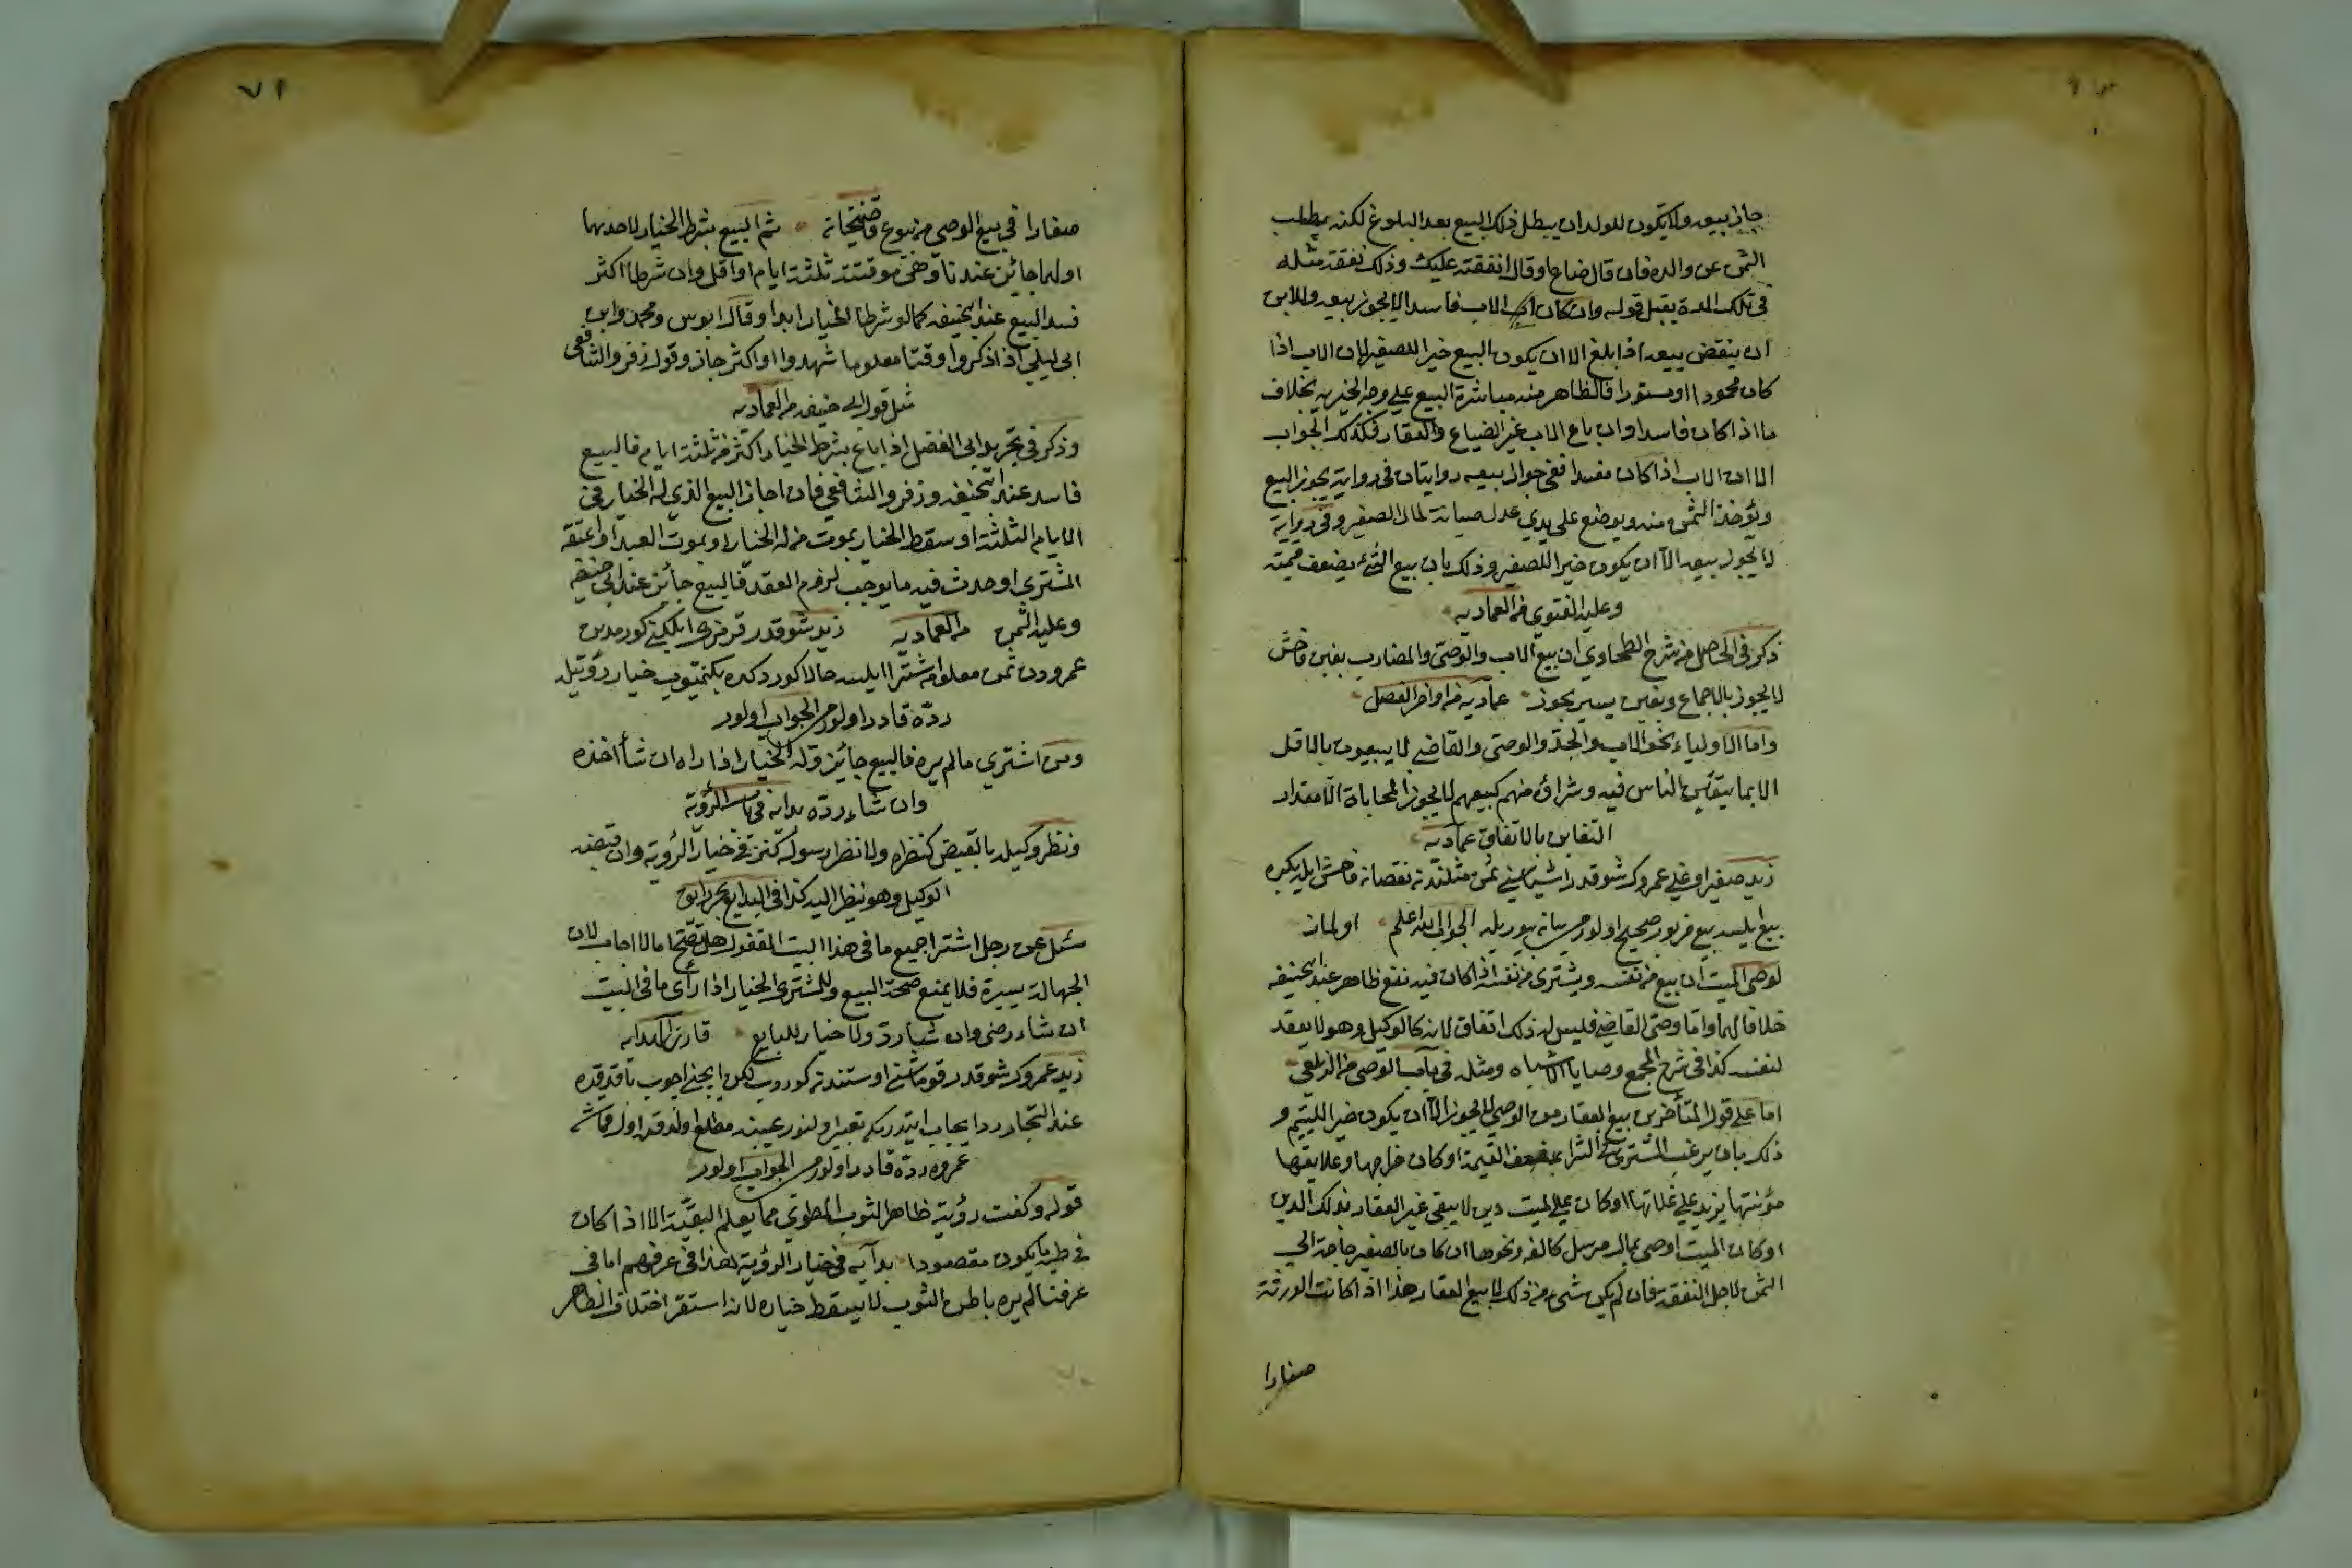 جاز بيعه ولا يكون للولد ان يبطل ذلك البيع بعد البلوغ لكنه يطلب
الثمن عن والده فان قال ضاع او قال انفقته عليك وذلك نفقة مثله
في تلك المدة يقبل قوله وان كان الاب فاسدا لا يجوز بيعه وللابن
ان ينقض بيعه اذا بلغ الا ان يكون البيع خيرا للصغير لان الاب اذا
كان محمودا او مستورا فالظاهر منه مباشرة البيع علي وجه الخيرية بخلاف
ما اذا كان فاسدا وان باع الاب غير الضياع والعقار فكذلك الجواب
الا ان الاب اذا كان مفسدا ففي جواز بيعه روايتان في رواية يجوز البيع
ويؤخذ الثمن منه ويوضع علي يدي عدل صيانة لمال الصغير وفي رواية
لا يجوز بيعه الا ان يكون خيرا للصغير وذلك بان بيع الشئ بضعف قيمته
وعليه الفتوي من العمادية
ذكر في الحاصل من شرح الطحاوي ان بيع الاب والوصي والمضارب بغبن فاحش
لا يجوز بالاجماع وبغبن يسير يجوز عمادية من اواخر الفصل
واما الاولياء نحو الاب والجد والوصي والقاضي لا يبيعون بالاقل
الا بما يتغابن الناس فيه وشراؤه منهم كبيعهم لا يجوز المحاباة الا مقدار
التغابن بالاتفاق عمادية
زيد صغير اوغلي عمروك شو قدر اشياسني ثمن مثلندن نقصان فاحش ايله بكره
بيع ايلسه بيع مزبور صحيح اولورمي بيان بيوريله الجواب الله اعلم اولماز
لوصي الميت ان يبيع من نفسه ويشتري من نفسه اذا كان فيه نفع ظاهر عند ابي حنيفه
خلافا لهما واما وصي القاضي فليس له ذلك اتفاق لانه كالوكيل وهو لا يعقد
لنفسه كذا في شرح المجمع وصايا الاشباه ومثله في باب الوصي من الزيلعي
اما علي قول المتأخرين بيع العقار من الوصي لا يجوز الا ان يكون خيرا لليتيم و
ذلك بان يرغب المشتري في الشرا بضعف القيمة او كان خراجها وعلايقها
مؤنتها يزيد علي غلاتها او كان علي الميت دين لا يبقي غير العقار بذلك الدين
او كان الميت اوصي بمال مرسل كالف ونحوها ان كان بالصغير حاجة الي
الثمن لاجل النفقة فان لم يكن شئ من ذلك لا يبيع العقار هذا اذا كانت الورثة
صغارا
٧١
صغارا في بيع الوصي من بيوع قاضيخان ثم البيع بشرط الخيار لاحدهما
اولهما جائز عندنا وهي موقتة ثلثة ايام او اقل وان شرطا اكثر
فسد البيع عند ابي حنيفه كما لو شرطا الخيار ابدا وقال ابو س ومحمد وابن
ابي ليلي اذا ذكروا وقتا معلوما شهدوا او اكثر جاز وقول زفر والشافعي
مثل قول ابي حنيفه من العمادية
وذكر في تجريد ابي الفضل اذا باع بشرط الخيار اكثر من ثلثة ايام فالبيع
فاسد عند ابي حنيفه وزفر والشافعي فان اجاز البيع الذي له الخيار في
الايام الثلثة او سقط الخيار بموت من له الخيار او بموت العبد او اعتقه
المشتري او حدث فيه ما يوجب لزوم العقد فالبيع جائز عند ابي حنيفه
وعليه الثمن من العمادية زيد شو قدر كورمدين
عمرودن ثمن معلومه اشترا ايلسه حالا كوردكده بكنميوب خيار رؤيتيله
رده قادر اولورمي الجواب اولور
ومن اشتري ما لم يره فالبيع جائز وله الخيار اذا راه ان شأ اخذه
وان شاء رده هدايه في باب الرؤية
ونظر وكيله بالقبض كنظره ولا نظر رسوله كنز في خيار الرؤية وان قبضه
الوكيل وهو ينظر اليه كذا في البدايع بحر رايق
سئل عن رجل اشترا جميع ما في هذا البيت المقفول هل يصح ام لا اجاب لان
الجهالة يسيرة فلا يمنع صحة البيع وللمشتري الخيار اذا رأي ما في البيت
ان شاء رضي وان شا رد ولا خيار للبايع قارئ الهدايه
زيد عمروك شو قدر قوماشني اوستندن كوروب ايچني اچوب باقمقده
عند التجار اولنور عيبنه مطلع اولدقده اول قماشي
عمروه رده قادر اولورمي الجواب اولور
قوله وكفت رؤية ظاهر الثوب المطوي مما يعلم البقية الا اذا كان
في طيه ما يكون مقصودا هدايه في خيار الرؤية هذا في عرفهم اما في
عرفنا لم يره باطن الثوب لا يسقط خياره لانه استقر اختلاف الظاهر